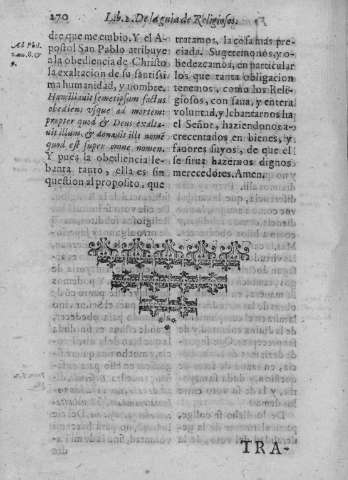 270 Lib. 2. De la guia de Religiosos.
Ad Phil.
2. nu. 8. &
9.
dre que me embio. Y el A-
postol San Pablo atribuye
a la obediencia de Christo
la exaltacion de su santissi
ma humanidad, y nombre.
Humiliauit semetipsum factus
obediens vsque ad mortem:
propter quod & Deus exalta-
uit illum, & donauit illi nomē
quod est super omne nomen.
Y pues la obediencia le-
banta tanto, ella es sin
question al proposito, que
tratamos, la cosa mas pre-
ciada. Sugetemonos, y o-
bedezcamos, en particular
los que tanta obligacion
tenemos, como los Reli-
giosos, con sana, y entera
voluntad, y lebantarnos ha
el Señor, haziendonos a-
crecentados en bienes, y
fauores suyos, de que el
se sirua hazernos dignos
merecedores. Amen.
TRA-